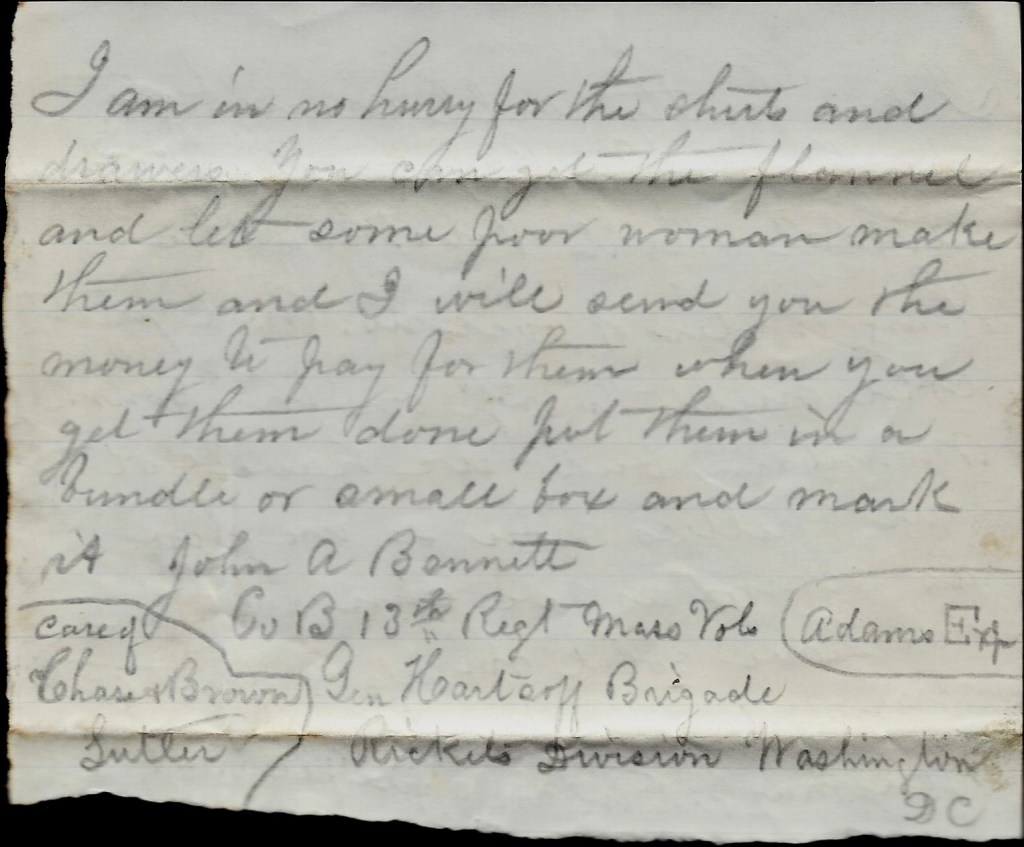 I am in no hurry for the shirts and
drawers You can get the flannel
and let some poor woman make
them and I will send you the
money to pay for them when you
get them done put them in a
bundle or small box and mark
it John A Bennett
Co B 13th Regt Mass Vols
Adams Exp
care of
Chase & Brown
Sutler
Gen Hartsuff Brigade
Rickets Division Washington
DC